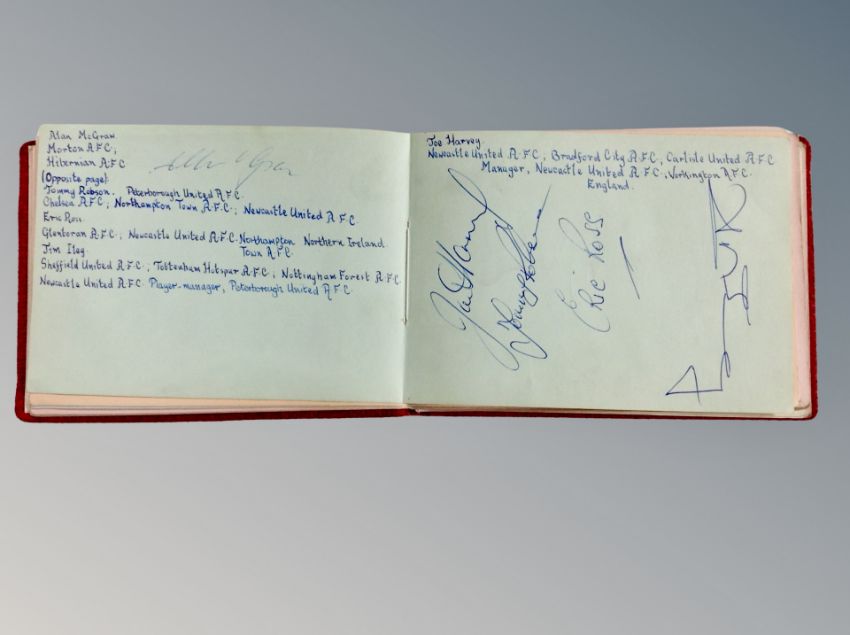 Alan McGraw.
Morton A.F.C.;
Hibernian A.F.C
(Opposite page)
Tommy Robson. Peterborough United A.F.C.
Chelsea A.F.C; Northampton Town A.F.C.; Newcastle United A.F.C.
Eric Ross.
Glentoran A.F.C.; Newcastle United A.F.C. Northampton Northern Ireland.
Town A.F.C.
Jim Iley
Sheffield United A.F.C.; Tottenham Hotspur A.F.C.; Nottingham Forest A.F.C.
Newcastle United A.F.C. Player-manager, Peterborough United A.F.C.
Joe Harvey.
Newcastle United A.F.C; Bradford City A.F.C; Carlisle United A.F.C
Manager, Newcastle United A.F.C.; Workington A.F.C.
England.
Joe Harvey
Tommy Robson
Eric Ross